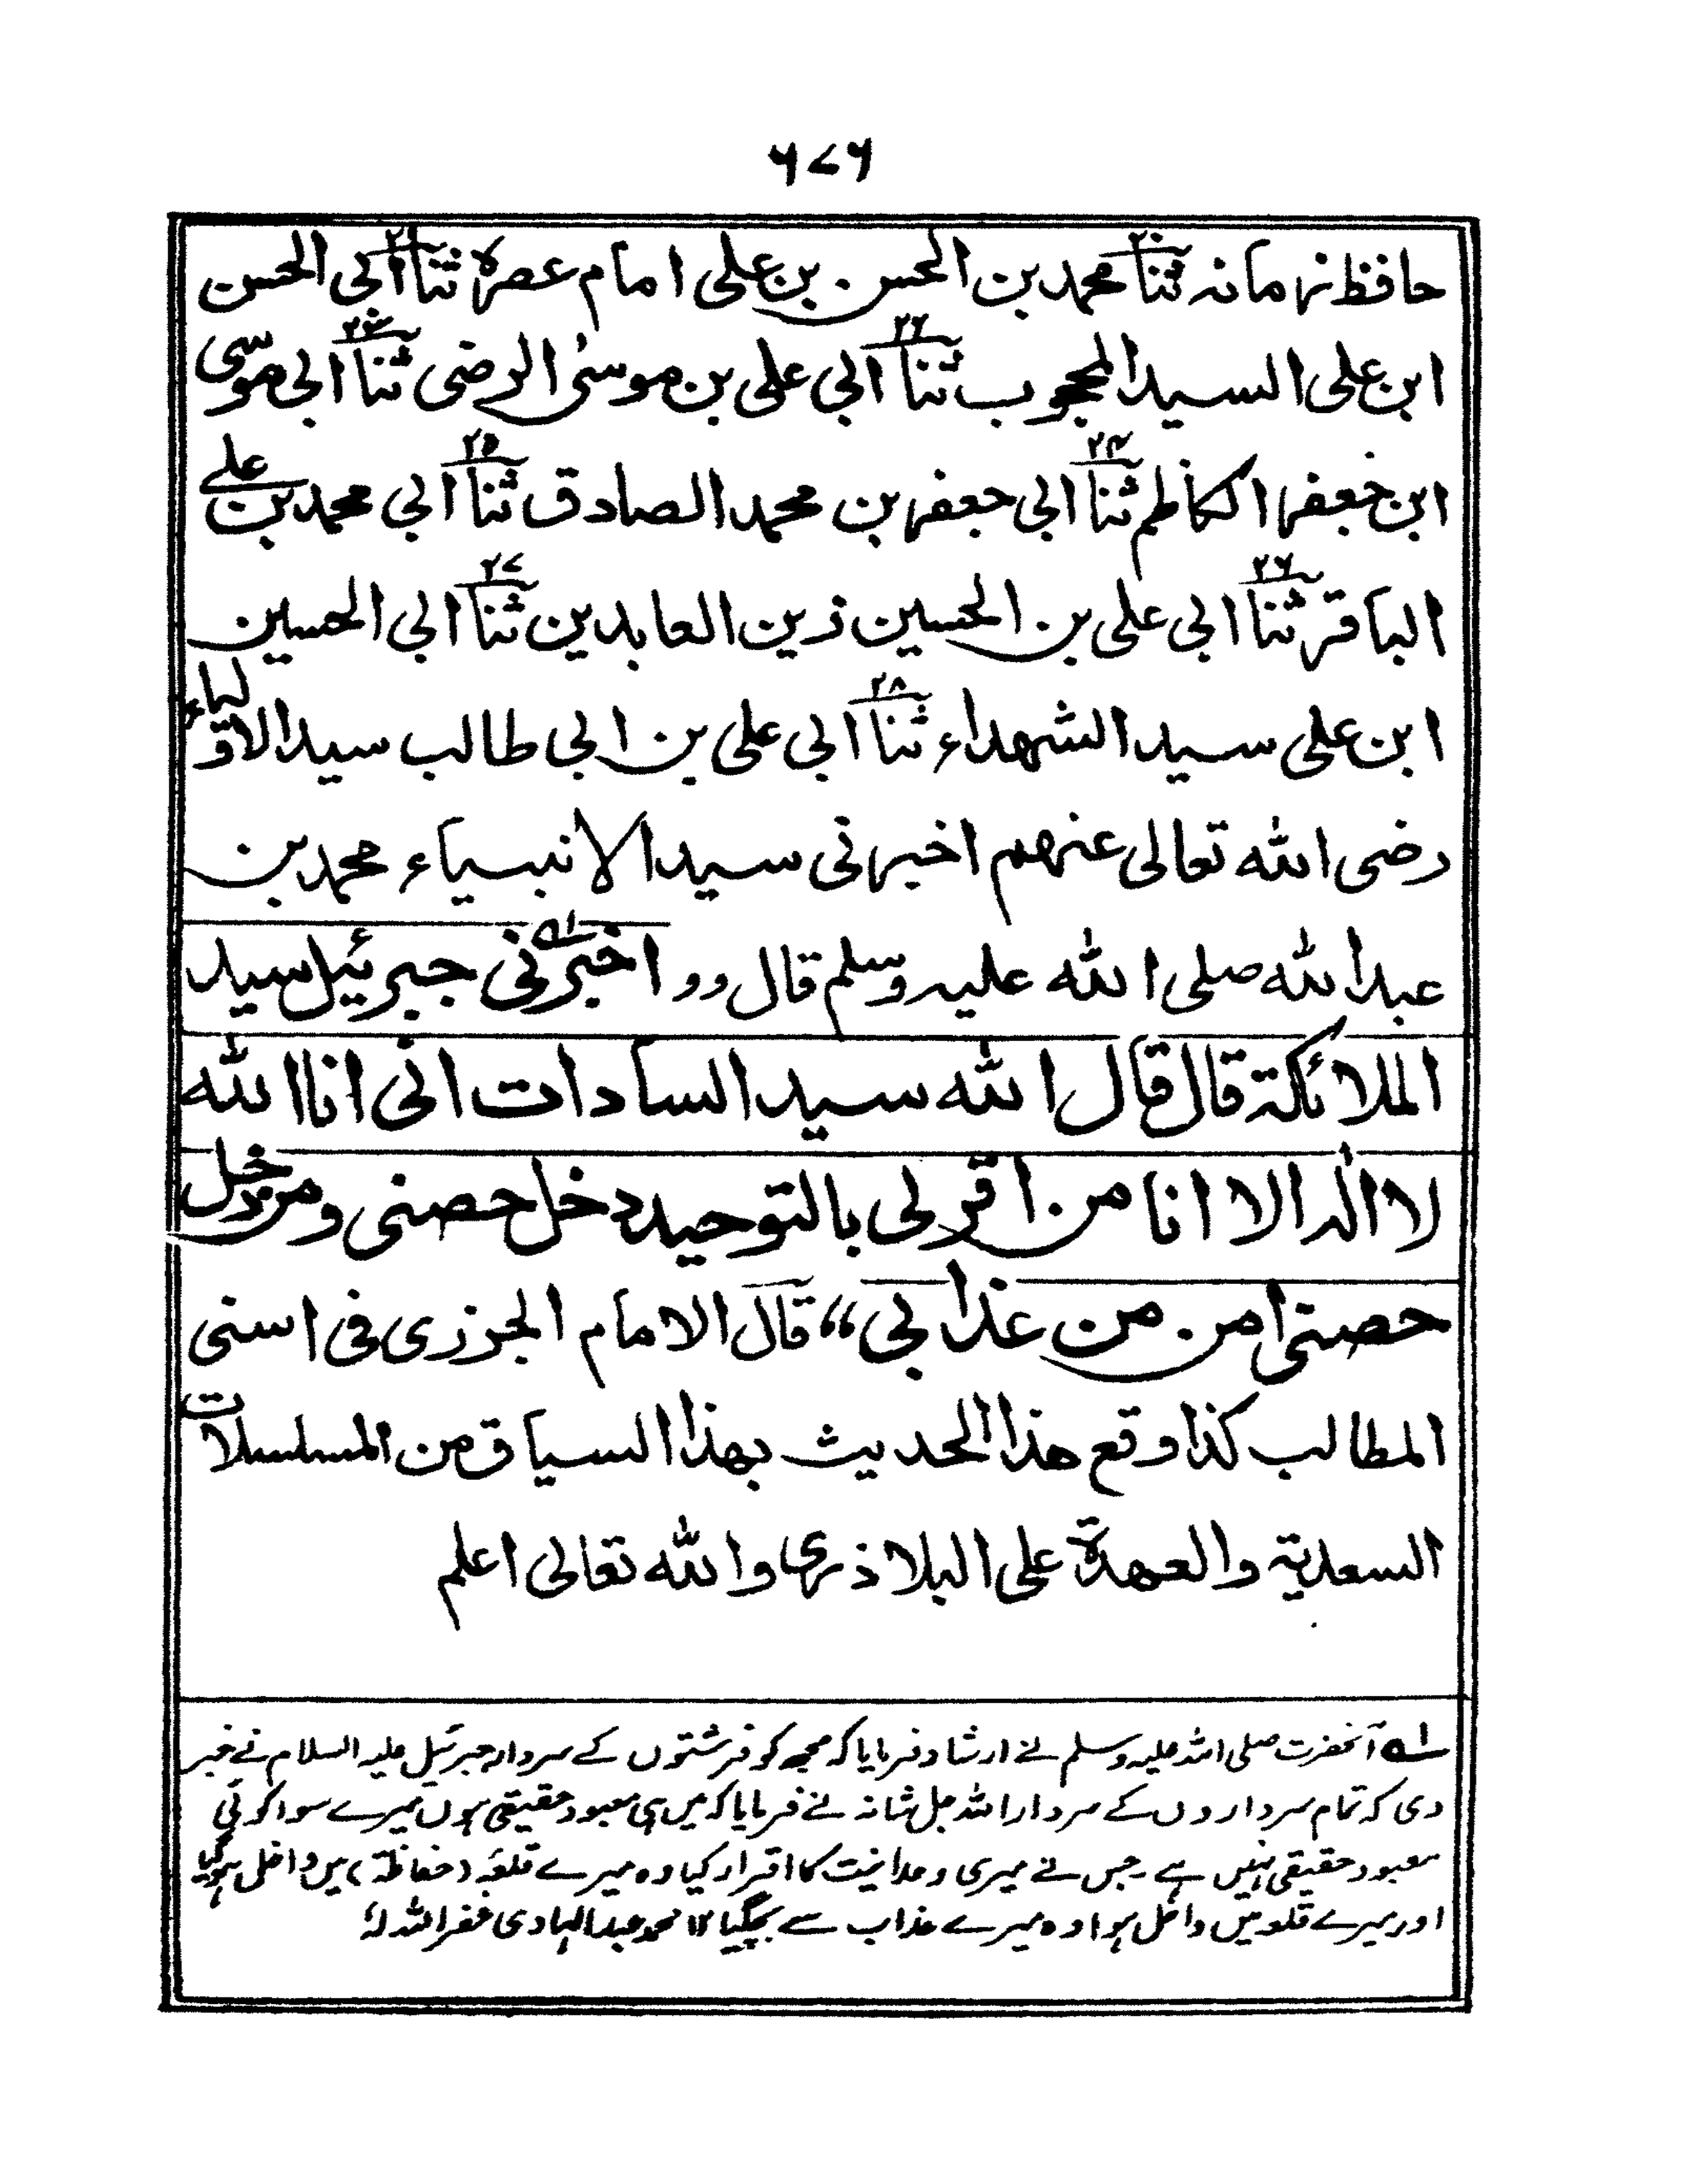 ۶۷۶
حافظ زمانہ ثنا۲۰ محمد بن الحسن بن علی امام عصرہ ثنا۲۱ ابی الحسن
ابن علی السید المحجوب ثنا۲۲ ابی علی بن موسیٰ الرضی ثنا۲۳ ابی موسی
ابن جعفر الکاظم ثنا۲۴ ابی جعفر بن محمد الصادق ثنا۲۵ ابی محمد بن علی
الباقر ثنا۲۶ ابی علی بن الحسین زین العابدین ثنا۲۷ ابی الحسین
ابن علی سید الشهداء ثنا۲۸ ابی علی بن ابی طالب سید الاولیاء
رضی اللہ تعالی عنهم اخبرنی سید الانبیاء محمد بن
عبد اللہ صلی اللہ علیہ وسلم قال ,, اخبرنی۱ہ جبرئیل سید
الملائکة قال قال اللہ سید السادات انی انا اللہ
لا الہ الا انا من اقر لی بالتوحید دخل حصنی ومن دخل
حصنی امن من عذابی “ قال الامام الجزری فی اسنی
المطالب کذا وقع هذا الحدیث بهذا السیاق من المسلسلات
السعدیة والعهدة علی البلاذری واللہ تعالی اعلم
۱ہ آنحضرت صلی اللہ علیہ وسلم نے ارشاد فرمایا کہ مجھ کو فرشتوں کے سردار جبرئیل علیہ السلام نے خبر
دی کہ تمام سرداروں کے سردار اللہ جل شانہ نے فرمایا کہ میں ہی معبود حقیقی ہوں میرے سوا کوئی
معبود حقیقی نہیں ہے۔ جس نے میری وحدانیت کا اقرار کیا وہ میرے قلعہٴ (حفاظة) میں داخل ہوگیا
اور میرے قلعہ میں داخل ہوا وہ میرے عذاب سے بچ گیا ۱۲ محمد عبد الہادی غفر اللہ لہٗ